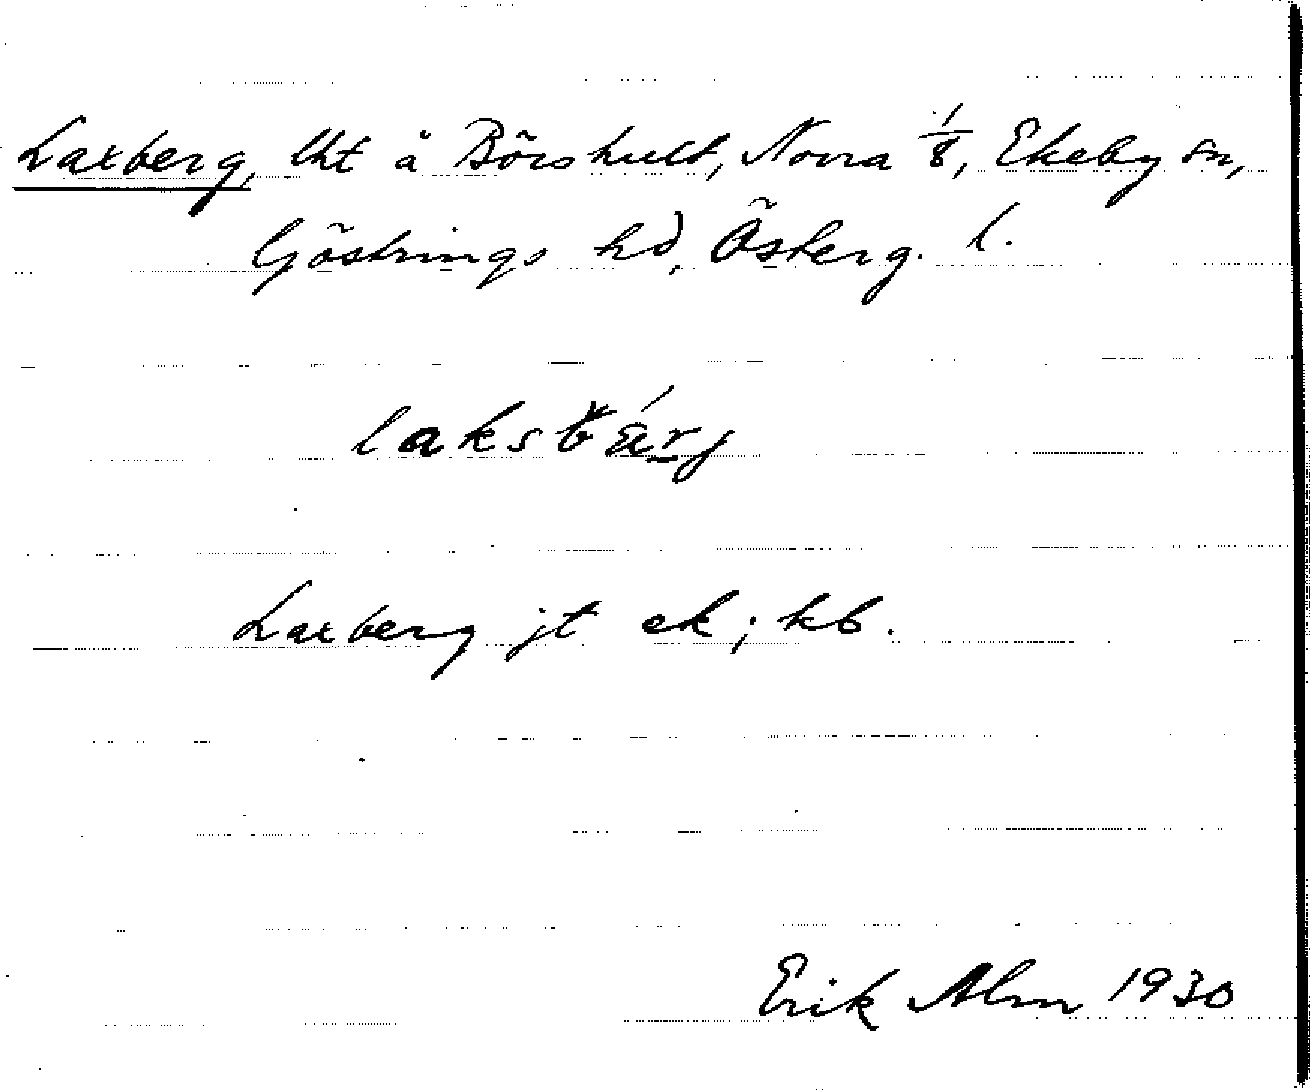 Laxberg, lht å Börshult, Norra 1/8, Ekeby sn,
Göstrings hd, Österg. l.
laksbärj
Laxberg jt ek; kb.
Erik Alm 1930